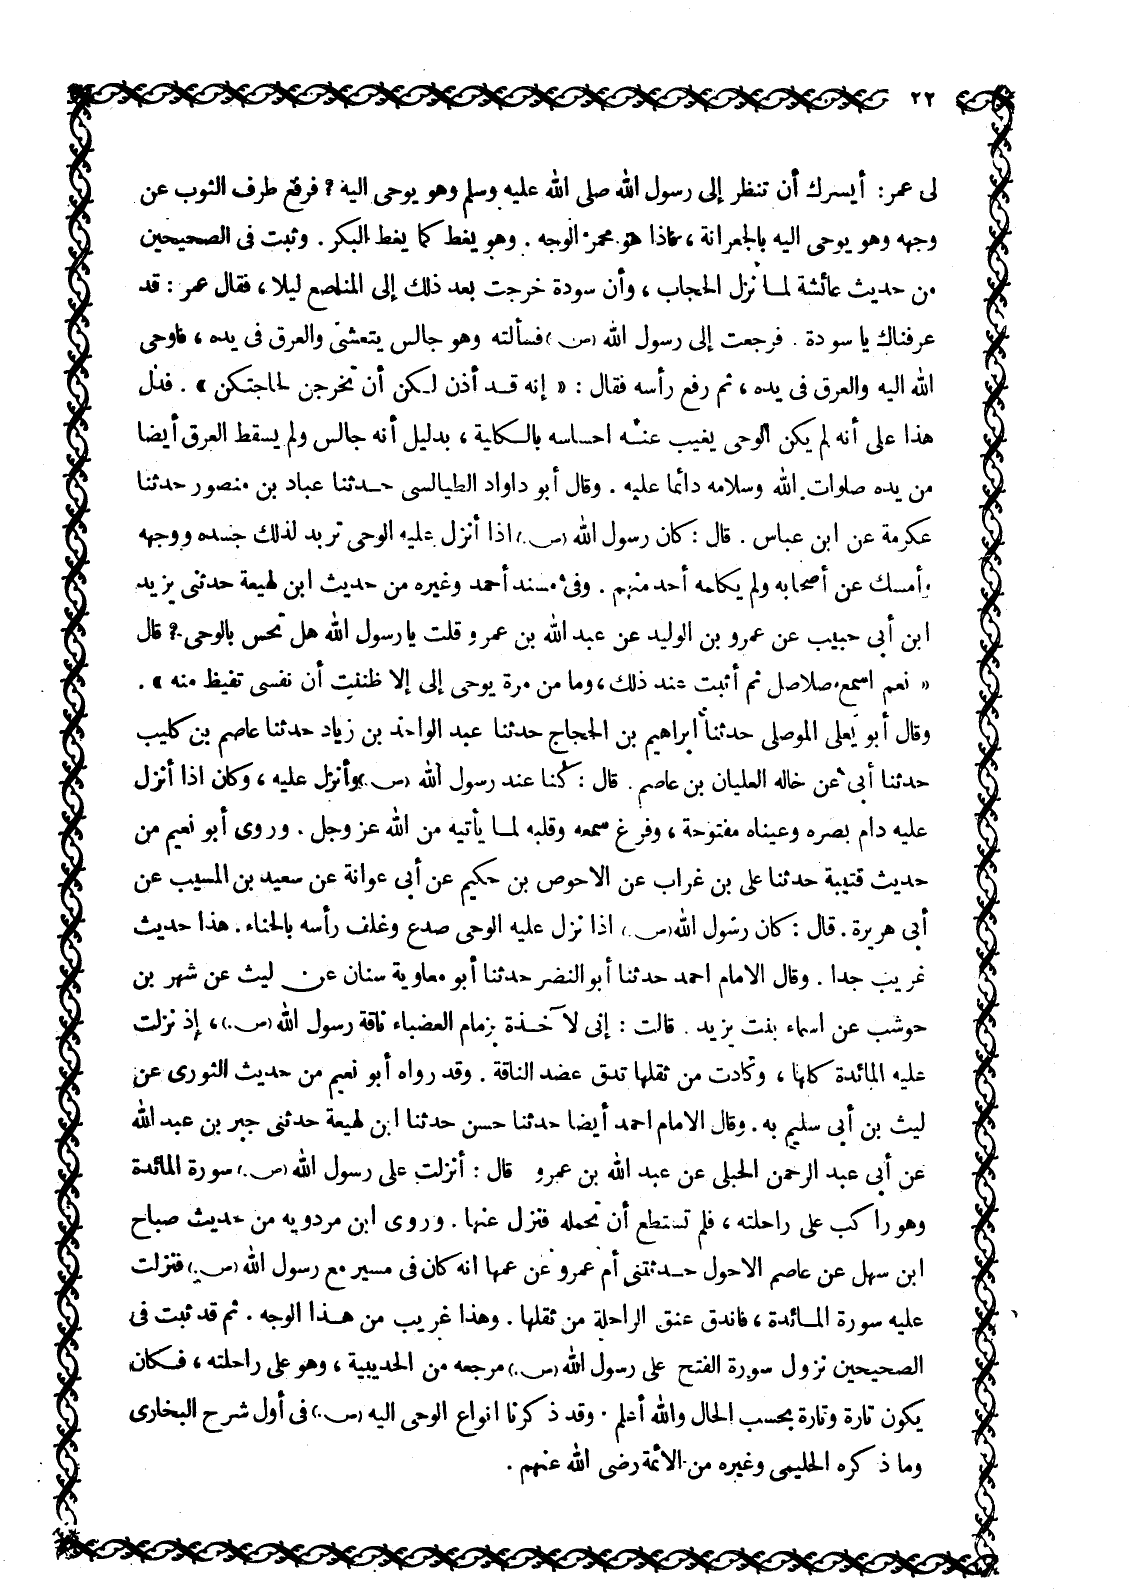 ٢٢
لى عمر: أيسرك أن تنظر إلى رسول الله صلى الله عليه وسلم وهو يوحى اليه ? فرفع طرف الثوب عن
وجهه وهو يوحى اليه بالجعرانة ، فاذا هو محمر الوجه . وهو يغط كما يغط البكر . وثبت فى الصحيحين
من حديث عائشة لمـا نزل الحجاب ، وأن سودة خرجت بعد ذلك إلى المناصع ليلا ، فقال عمر : قد
عرفناك يا سودة . فرجعت إلى رسول الله (س) فسألته وهو جالس يتعشى والعرق فى يده ، فاوحى
الله اليه والعرق فى يده ، ثم رفع رأسه فقال : « إنه قـد أذن لـكن أن تخرجن لحاجتكن » . فدل
هذا على أنه لم يكن الوحى يغيب عنـه احساسه بالـكاية ، بدليل أنه جالس ولم يسقط العرق أيضا
من يده صلوات الله وسلامه دائما عليه . وقال أبو داواد الطيالسى حـدثنا عباد بن منصور حدثنا
عكرمة عن ابن عباس . قال : كان رسول الله (س) اذا أنزل عليه الوحى تربد لذلك جسده ووجهه
وأمسك عن أصحابه ولم يكلمه أحد منهم . وفى مسند أحمد وغيره من حديث ابن لهيعة حدثنى يزيد
ابن أبى حبيب عن عمرو بن الوليد عن عبد الله بن عمرو قلت يا رسول الله هل تحس بالوحى ? قال
« نعم اسمع صلاصل ثم أثبت عند ذلك ، وما من مرة يوحى إلى إلا ظننت أن نفسى تفيظ منه » .
وقال أبو يعلى الموصلى حدثنا ابراهيم بن الحجاج حدثنا عبد الواحد بن زياد حدثنا عاصم بن كليب
حدثنا أبى عن خاله العليان بن عاصم . قال : كنا عند رسول الله (س) وأنزل عليه ، وكان اذا أنزل
عليه دام بصره وعيناه مفتوحة ، وفرغ سمعه وقلبه لمـا يأتيه من الله عز وجل . وروى أبو نعيم من
حديث قتيبة حدثنا على بن غراب عن الاحوص بن حكيم عن أبى عوانة عن سعيد بن المسيب عن
أبى هريرة . قال : كان رسول الله (س) اذا نزل عليه الوحى صدع وغلف رأسه بالحناء . هذا حديث
غريب جدا . وقال الامام احمد حدثنا أبو النضر حدثنا أبو معاوية سنان عن ليث عن شهر بن
حوشب عن اسماء بنت يزيد . قالت : إنى لآخـذة بزمام العضباء ناقة رسول الله (س) ، إذ نزلت
عليه المائدة كلها ، وكادت من ثقلها تدق عضد الناقة . وقد رواه أبو نعيم من حديث الثورى عن
ليث بن أبى سليم به . وقال الامام احمد أيضا حدثنا حسن حدثنا ابن لهيعة حدثنى جبر بن عبد الله
عن أبى عبد الرحمن الحبلى عن عبد الله بن عمرو قال : أنزلت على رسول الله (س) سورة المائدة
وهو راكب على راحلته ، فلم تستطع أن تحمله فنزل عنها . وروى ابن مردويه من حديث صباح
ابن سهل عن عاصم الاحول حـدثتنى أم عمرو عن عمها انه كان فى مسير مع رسول الله (س) فنزلت
عليه سورة المـائدة ، فاندق عنق الراحلة من ثقلها . وهذا غريب من هـذا الوجه . ثم قد ثبت فى
الصحيحين نزول سورة الفتح على رسول الله (س) مرجعه من الحديبية ، وهو على راحلته ، فـكان
يكون تارة وتارة بحسب الحال والله أعلم . وقد ذكرنا انواع الوحى اليه (س) فى أول شرح البخارى
وما ذكره الحليمى وغيره من الائمة رضى الله عنهم .